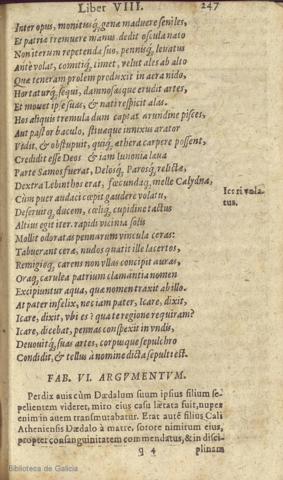 Liber VIII. 247
Inter opus, monitusq́, genæ maduere seniles,
Et patriæ tremuere manus. dedit oscula nato
Non iterum repetenda suo, pennisq́, levatus
Antè volat, comitiq́, timet, velut ales ab alto
Quæ teneram prolem produxit in aera nido,
Hortaturq́, sequi, damnosasque erudit artes,
Et movet ipse suas, & nati respicit alas.
Hos aliquis tremula dum captat arundine pisces,
Aut pastor baculo, stiuaque innixus arator
Vidit, & obstupuit, quiq́, æthera carpere possent,
Credidit esse Deos & iam Iunonia læua
Parte Samos fuerat, Delosq́, Parosq́, relictæ,
Dextra Lebinthos erat, fœcundaq́, melle Calydna,
Cùm puer audaci cœpit gaudere volatu,
Icari vola-
tus.
Deseruitq́, ducem, cœliq́, cupidine tactus
Altius egit iter. rapidi vicinia solis
Mollit odoratas pennarum vincula ceras:
Tabuerant ceræ, nudos quatit ille lacertos,
Remigioq́, carens non vllas concipit auras,
Oraq́, cærulea patrium clamantia nomen
Excipiuntur aqua, quæ nomen traxit ab illo.
At pater infelix, nec iam pater, Icare, dixit,
Icare, dixit, vbi es? qua te regione requiram?
Icare, dicebat, pennas conspexit in vndis,
Deuouitq́, suas artes, corpusque sepulchro
Condidit, & tellus à nomine dicta sepulti est.
FAB. VI. ARGVMENTVM.
Perdix auis cùm Dædalum suum ipsius filium se-
pelientem videret, miro eius casu lætata fuit, nuper
enim in auem transmutabatur. Erat autē filius Cali
Atheniensis Dædalo à matre, sorore nimirum eius,
propter consanguinitatem commendatus, & in disci-
q 4 plinam
Biblioteca de Galicia